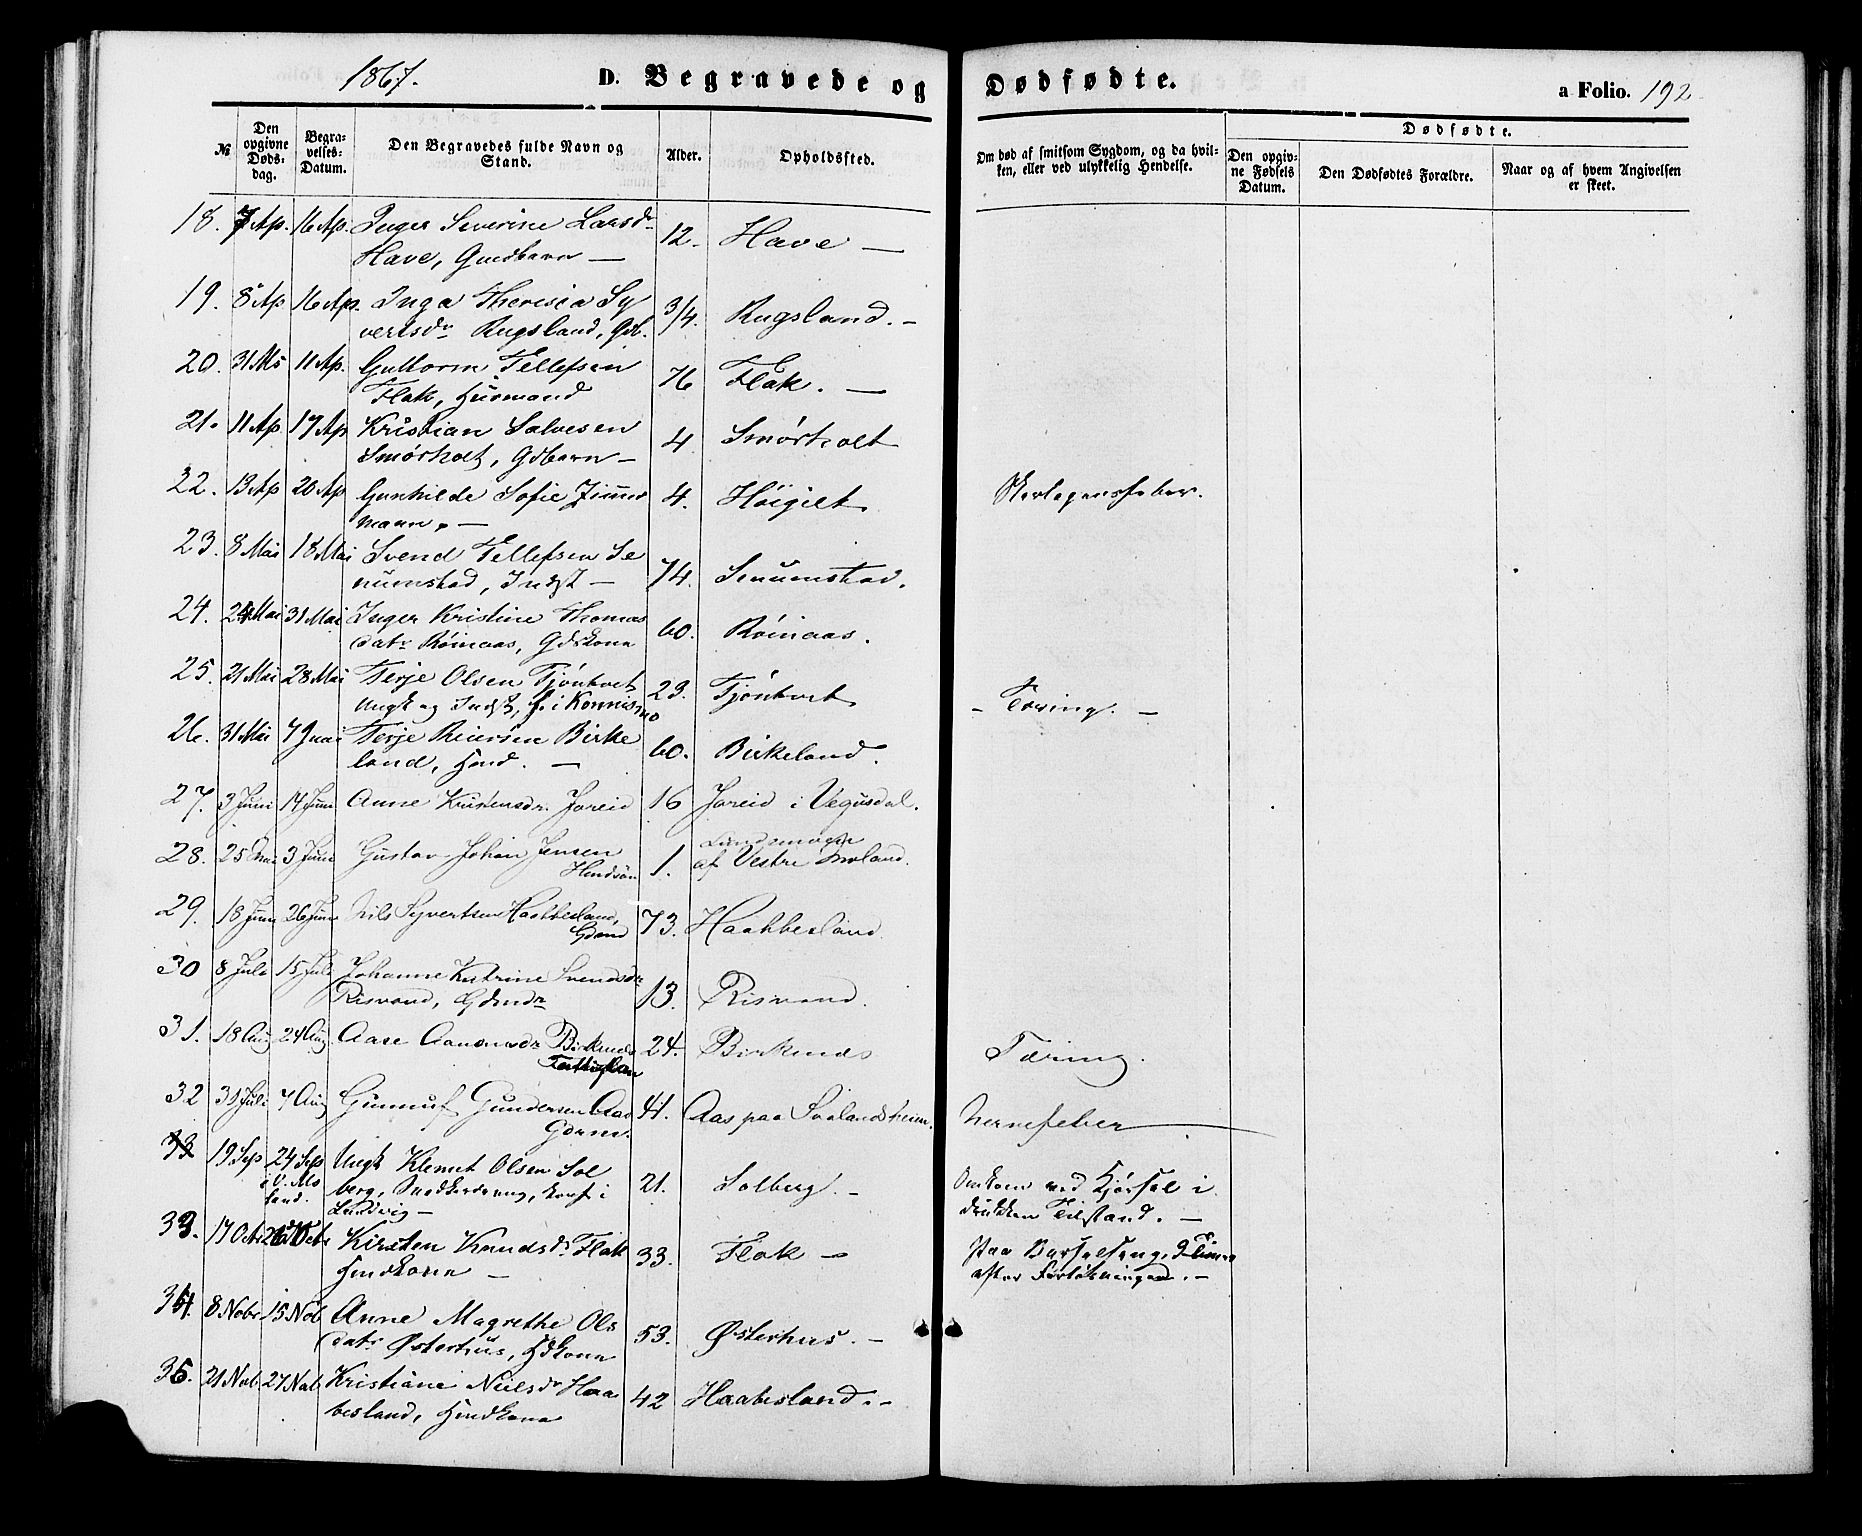 1867.
D. Begravede og Dødfødte.
a Folio. 192
№
Den opgivne Døds-dag.
Begra-velses-Datum.
Den Begravedes fulde Navn og Stand.
Alder.
Opholdsted.
Om død af smitsom Sygdom, og da hvil-
ken, eller ved ulykkelig Hendelse.
Dødfødte.
Den opgiv-ne Fødsels Datum.
Den Dødfødtes Forældre.
Naar og af hvem Angivelsen er skeet.
18. 7 Ap. 16 Ap. Inger Severine Larsdr
Have, Gmdbarn — 12. Have —
19. 8 Ap 16 Ap. Inga Theresia Sy
vertsdr Rugsland, Gdb. 3/4. Rugsland. —
20. 31 Ms 11 Ap. Guttorm Tellefsen
Flak, Husmand 76 Flak. —
21. 11 Ap 17 Ap Kristian Salvesen
Smørholt, Gdbarn — 4 Smørholt
22. 13 Ap 20 Ap Gunhilde Sofie Zimmer
mann. — 4. Høigilt Skarlagensfeber.
23. 8 Mai 18 Mai Svend Tellefsen Se
numstad, Indst — 74. Senumstad.
24. 24 Mai 31 Mai Inger Kristine Thomas
datr Røinaas, Gdskone 60. Røinaas.
25. 21 Mai 28 Mai Terje Olsen Tjøntvet
Ungk og Indst, f. i Konnismo 23. Tjøntvet — Tæring. —
26. 31 Mai 7 Juni Terje Reiersen Birke
land, Hmd. — 60. Birkeland.
27. 3 Juni 14 Juni Anne Kristensdr. Joreid 16 Joreid i Vegusdal.
28. 25 3 Juni Gustav Johan Jensen
1. Landsmoen
af Vestre Moland.
29. 18 Juni 26 Juni Nils Syvertsen Haabbesland,
Gdmd 73. Haabbesland
30 8 Juli 15 Juli Johanne Katrine Svendsdr
Risvand, Gdmdr 13. Risvand.
31. 18 Aug 24 Aug. Aase Aanensdr Birkenes
24. Birkenes Tæring.
32 30 Juli 7 Aug Gunnuf Gundersen Aas
41. Aas paa Svalandsheien. Nervefeber
33 19 Sep 24 Sep
i V. Mo
land. Ungk Klemet Olsen Sol
berg, 21. Solberg. — Omkom ved Kjørsel i
drukken Tilstand. —
33. 17 Octr 26 Octr Kirsten Knudsdr Flak
Hmdkone — 33. Flak — Paa Barselseng, 9 Timer
efter Forløsningen. —
34. 8 Nobr 15 Nob Anne Magrethe Ols
datr Østerhus, Gdkone 53. Østerhus. —
35. 21 Nob. 27 Nob. Kristiane Neilsdr Haa
besland, Hmdkone 42 Haabesland. —